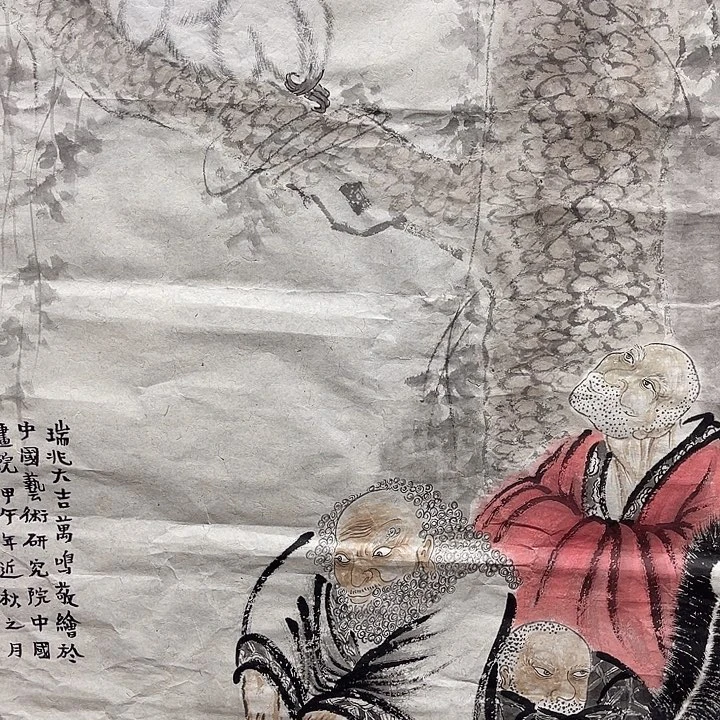 瑞兆大吉萬鳴敬繪於
中國藝術研究院中國
畫院甲午年近秋之月